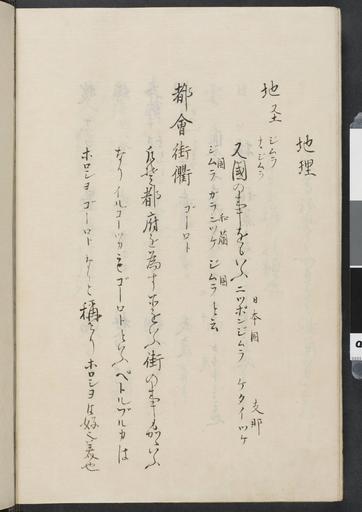 地理
地圣 ジムラ
又國の事をもいふ ニツポンジムラ 日本国 ケタイツケ 支那
ジムラ 国 ガランツケ 和蘭 ジムラ 国 と云
都會街衢 ゴーロト
都府を為す 所をいふ街の事 いふ
なり イルコーツカ ゴーロトといふ ペトルブルカは
ホロシヨ ゴーロト なりと稱す ホロシヨは好之義也